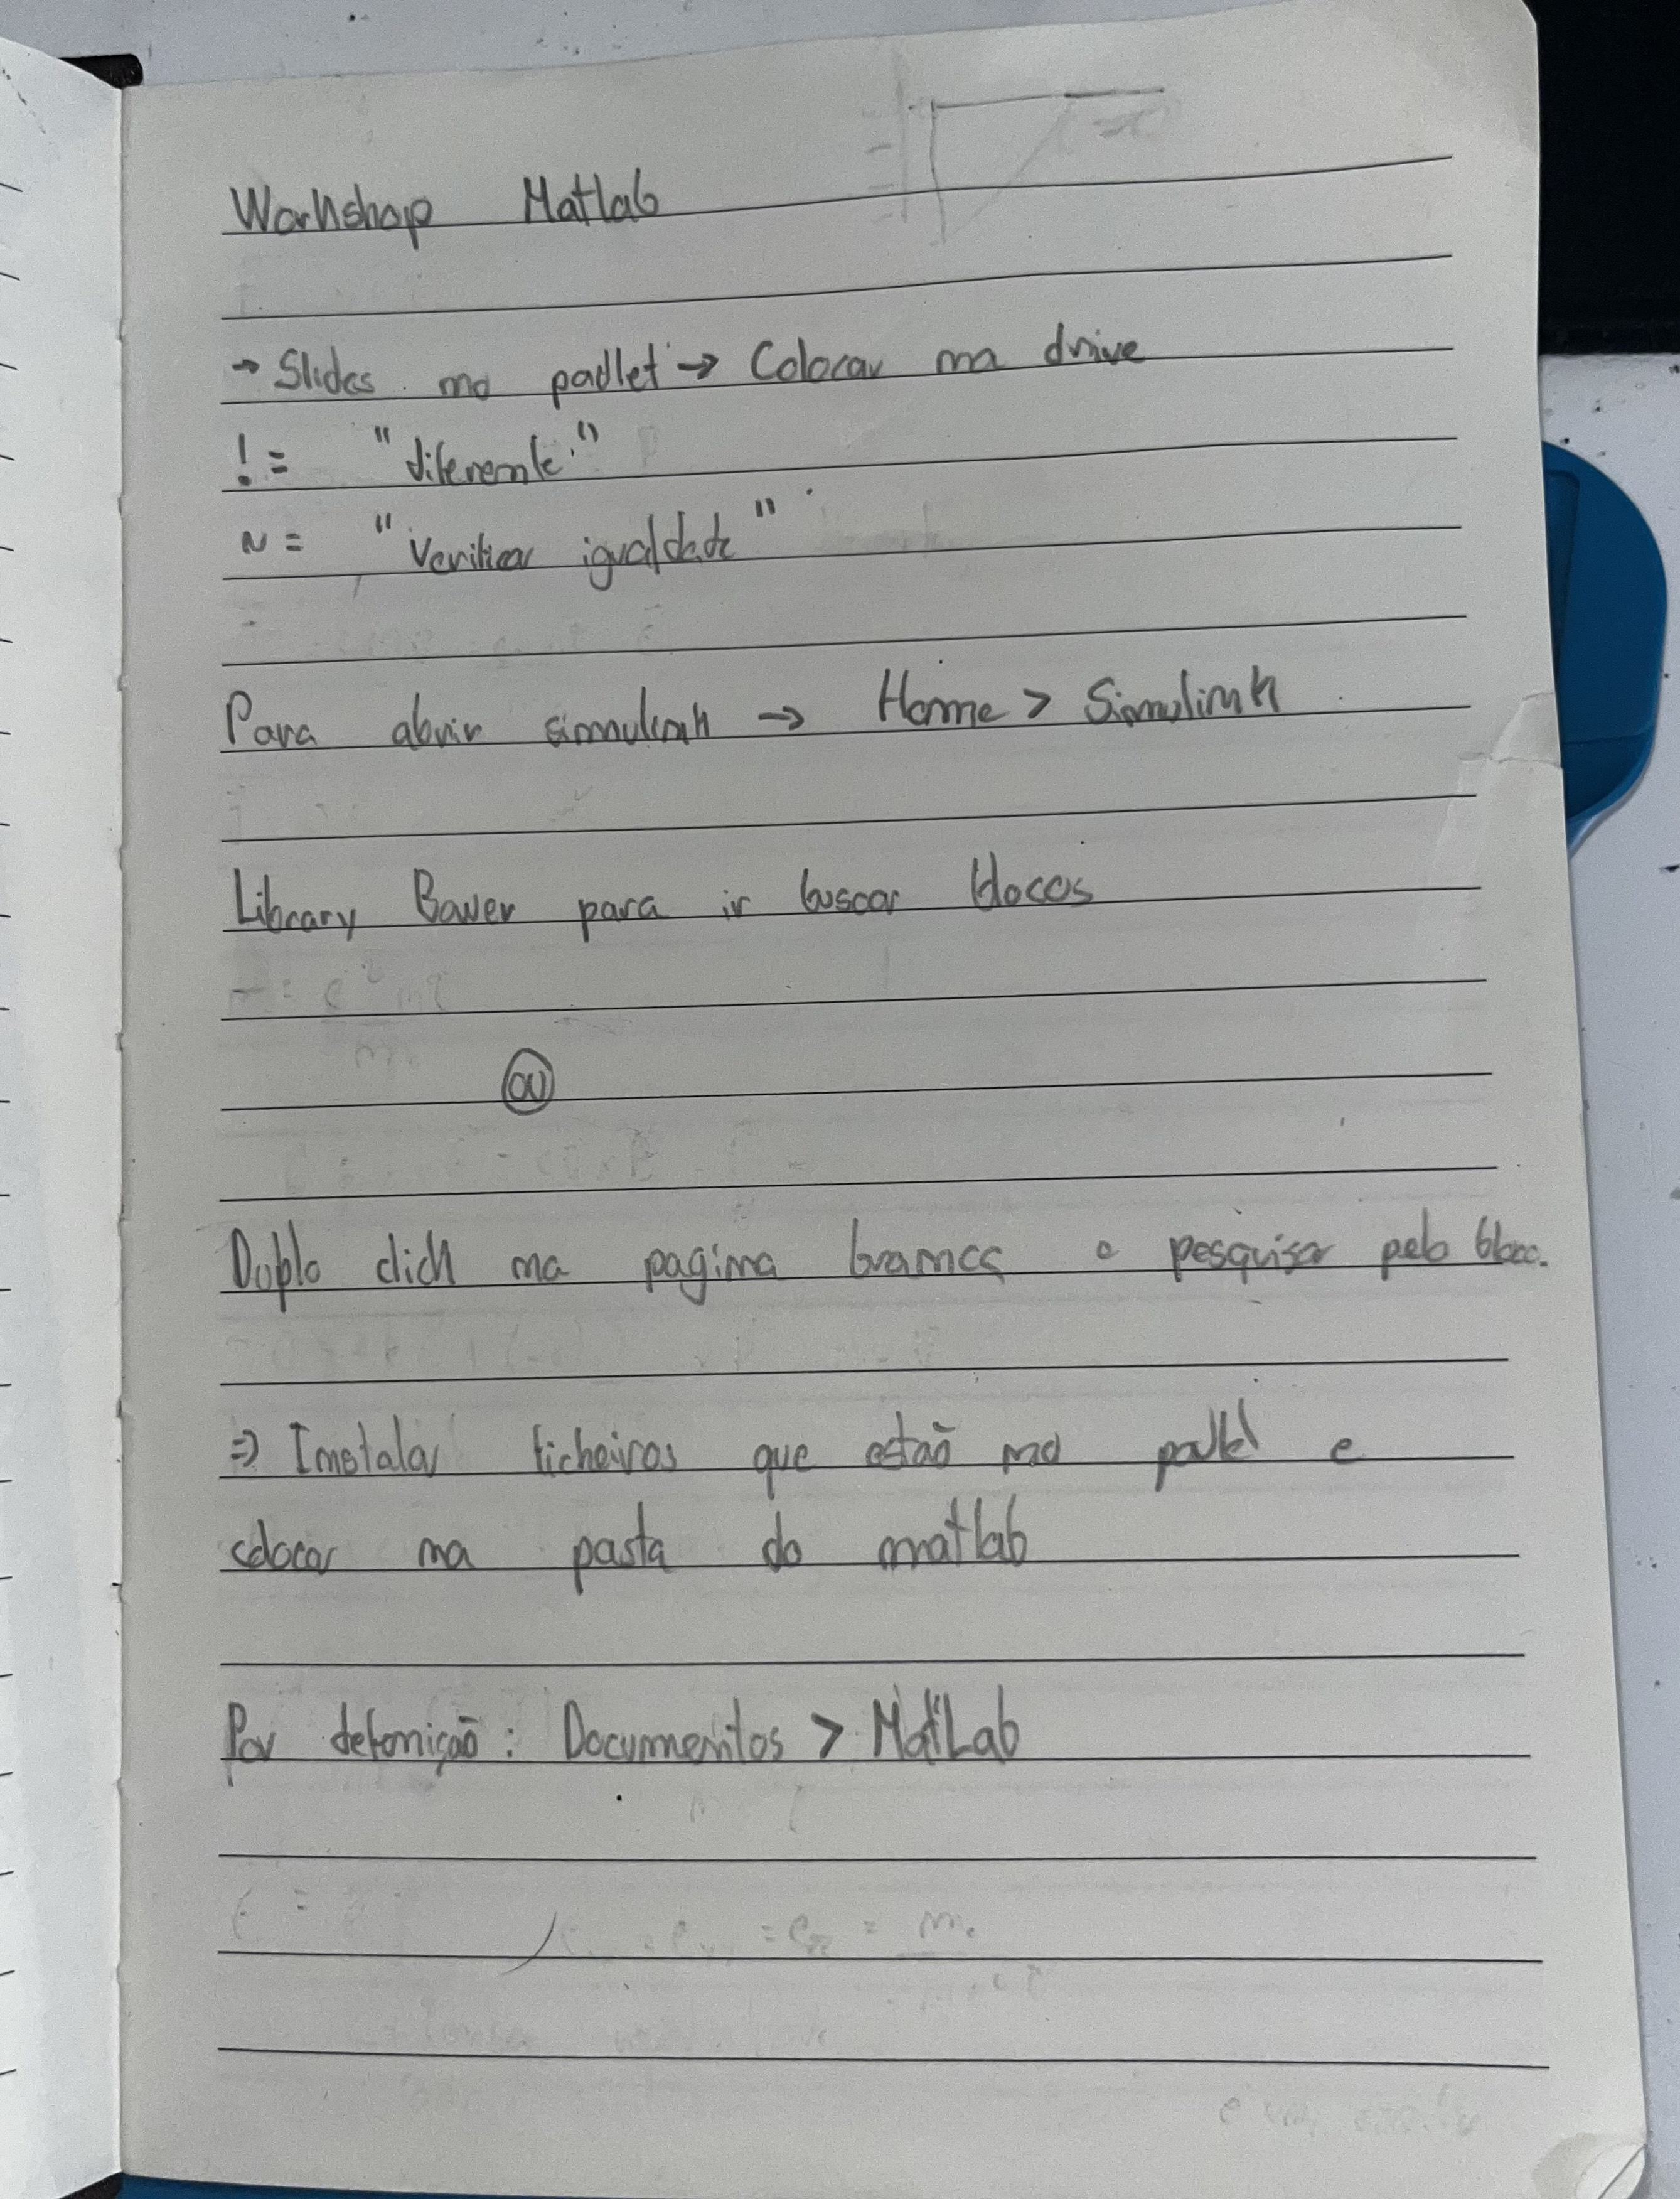 Workshop Matlab
→ Slides no padlet → Colocar na drive
!= "diferente"
~= "Verificar igualdade"
Para abrir simulink → Home > Simulink
Library Bower para ir buscar blocos
ou
Duplo click na pagina branca e pesquisar pelo bloco.
⇒ Instalar ficheiros que estão no padlet e
colocar na pasta do matlab
Por defenição: Documentos > MatLab